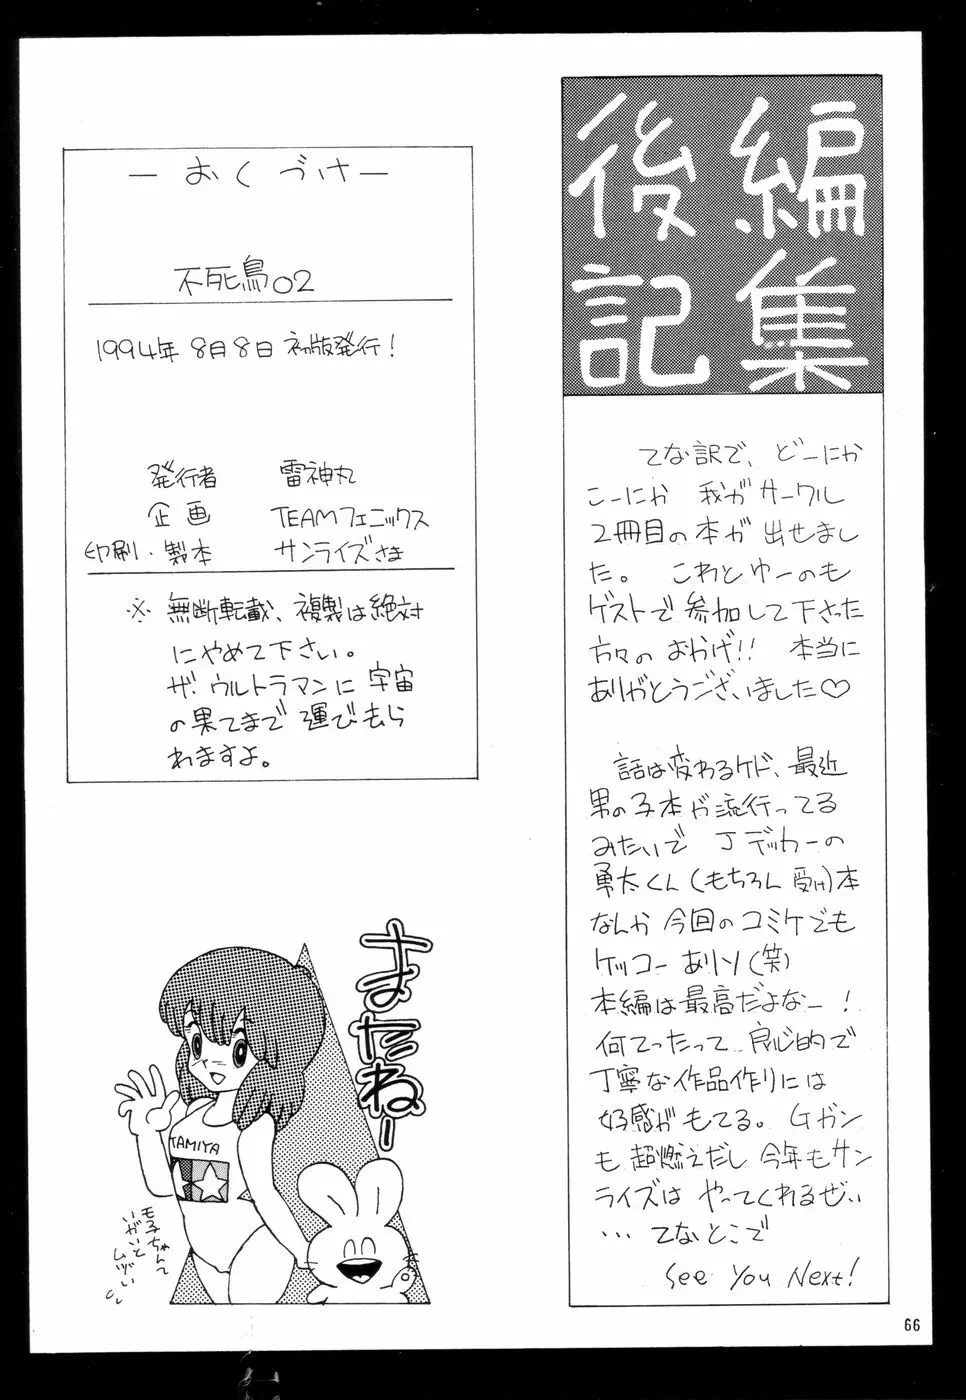 編集
後記
てな訳で、どーにか
こーにか 我がサークル
2冊目の本が 出せまし
た。 これとゆーのも
ゲストで参加して下さった
方々のおかげ!! 本当に
ありがとうございました♡
話は変わるケド、最近
男の子本が流行ってる
みたいで Jデッカーの
勇太くん(もちろん 受け)本
なんか今回のコミケでも
ケッコーありソ(笑)
本編は最高だよなー!
何てったって 良心的で
丁寧な作品作りには
好感がもてる。Gガン
も 超燃えだし 今年もサン
ライズは やってくれるぜい
… てなとこで
See You Next!
— おくづけ —
不死鳥02
1994年 8月8日 初版発行!
発行者 雷神丸
企画 TEAMフェニックス
印刷・製本 サンライズさま
※ 無断転載、複製は絶対
にやめて下さい。
ザ・ウルトラマンに宇宙
の果てまで 運びもら
れますよ。
またねー
TAMIYA
モ子ちゃんて
いがいと
ムヅい
66